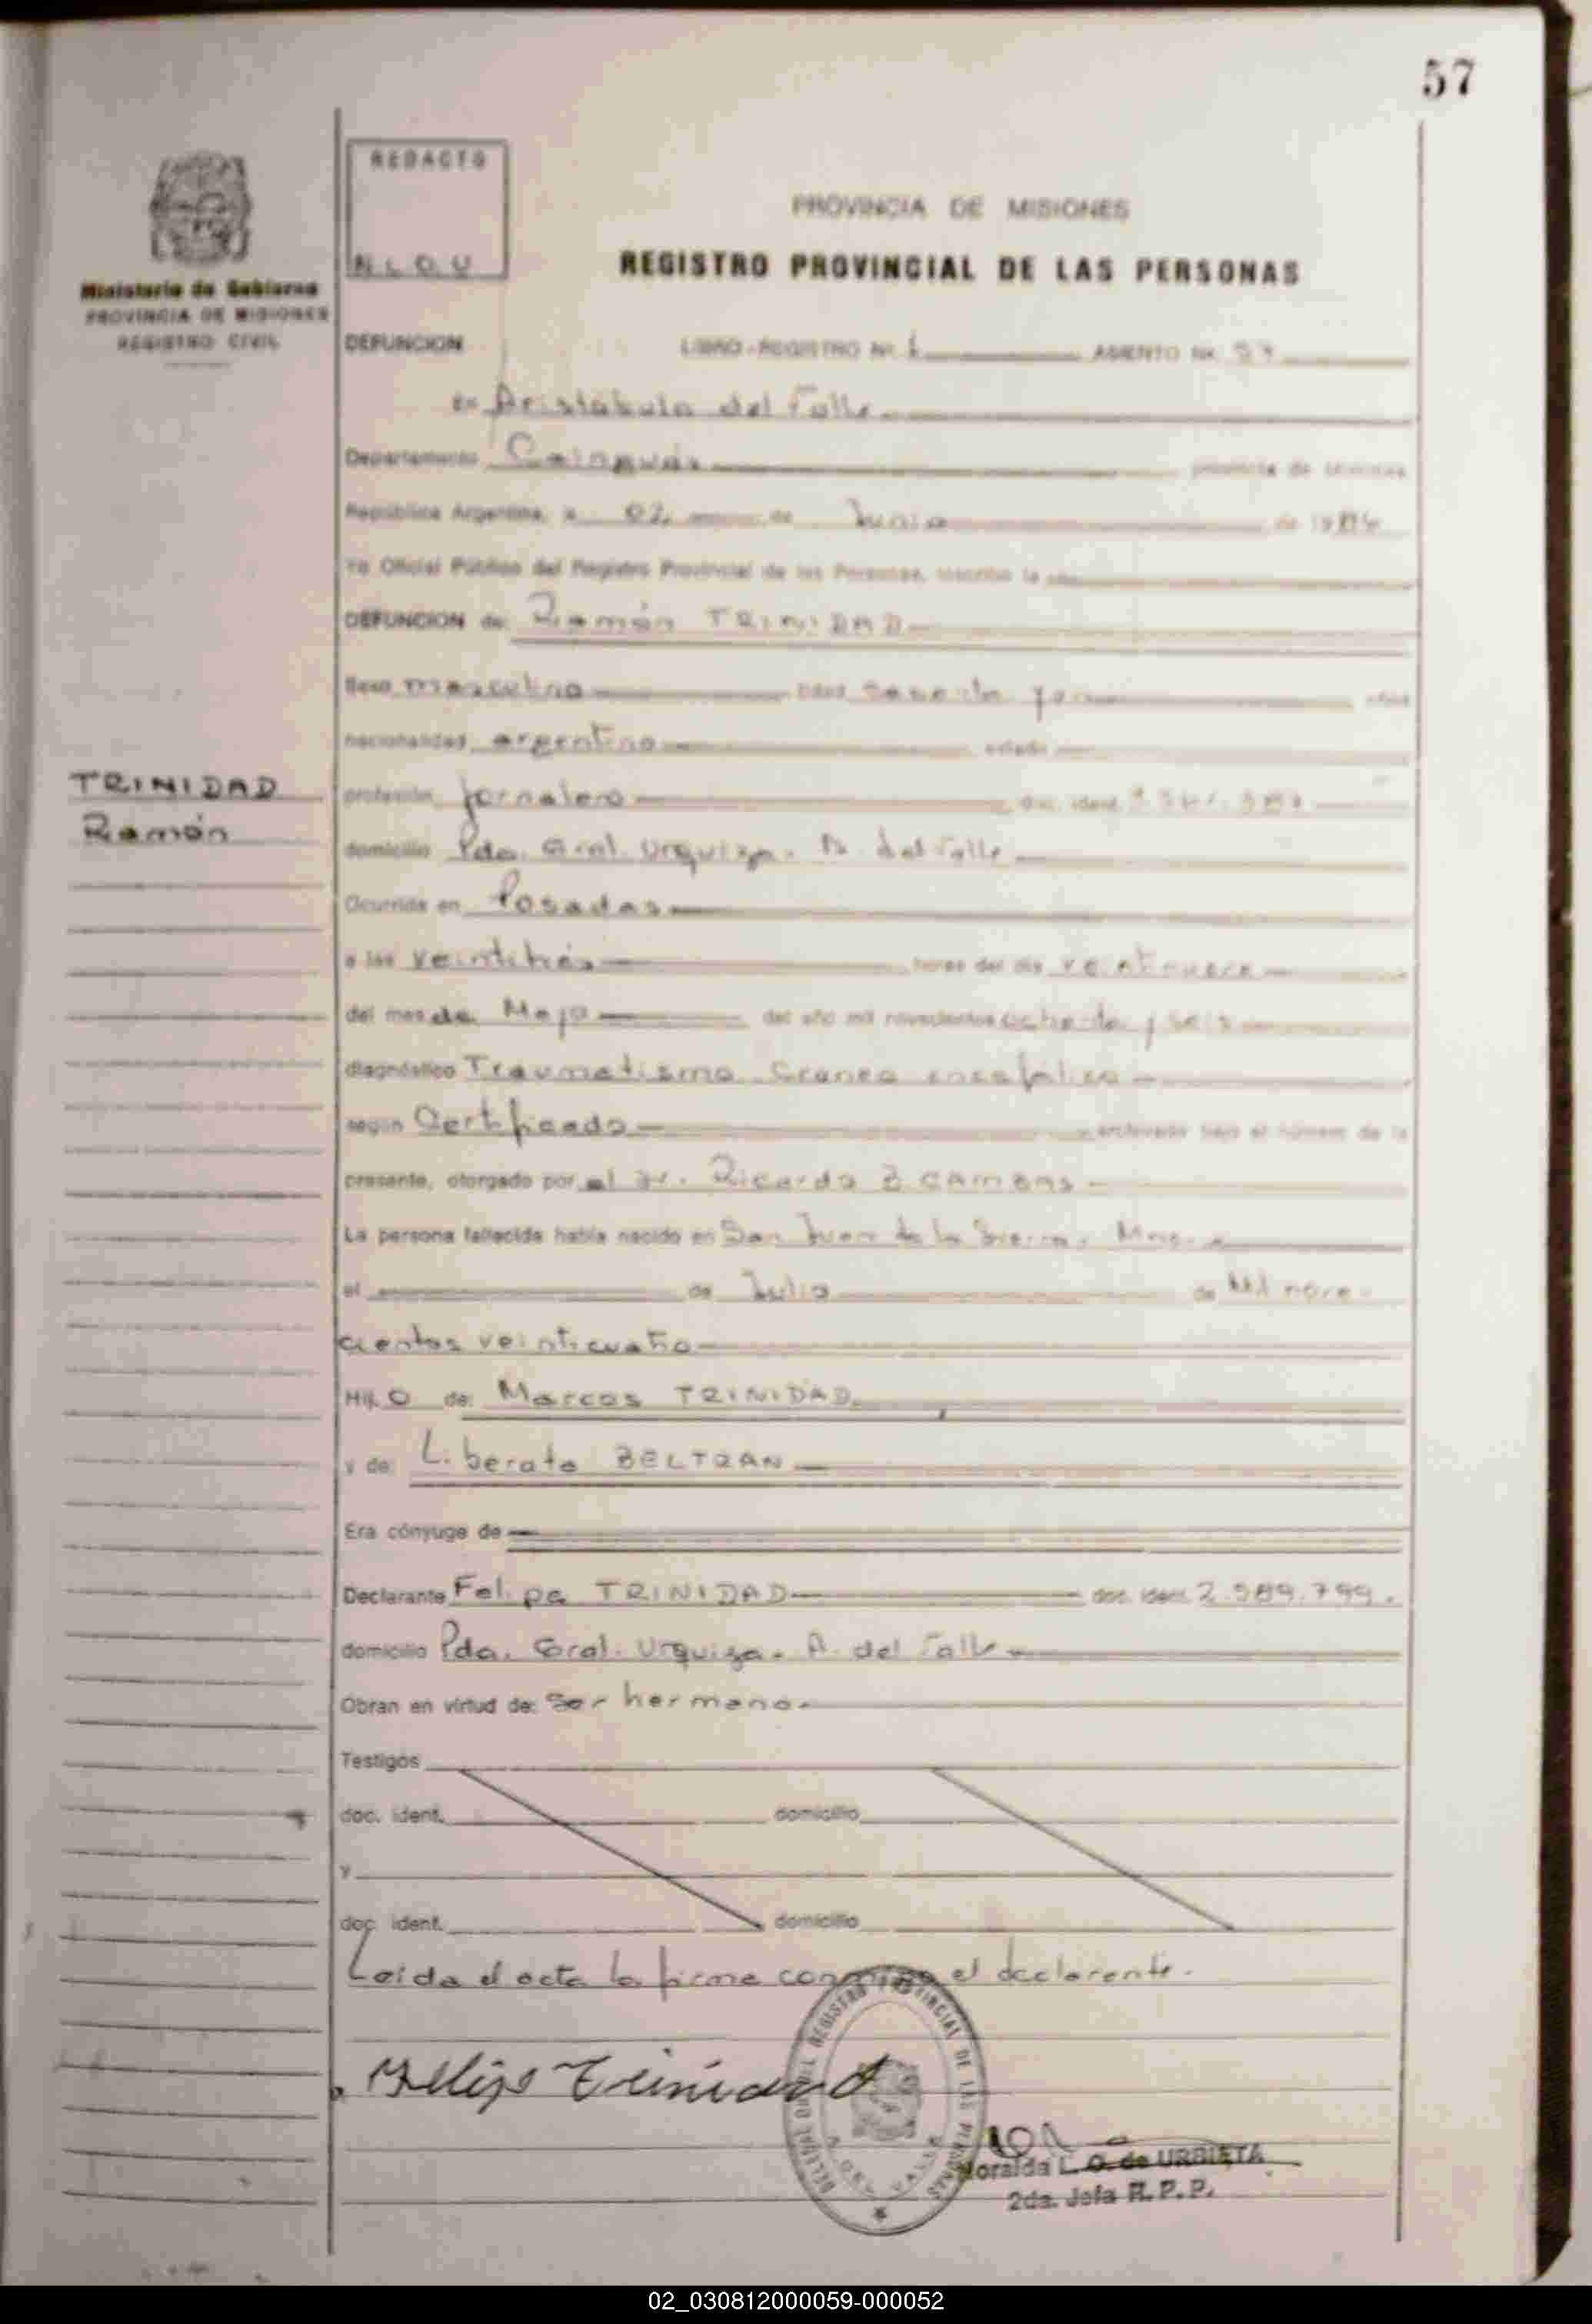 57
REDACTO
N L O U
Ministerio de Gobierno
PROVINCIA DE MISIONES
REGISTRO CIVIL
PROVINCIA DE MISIONES
REGISTRO PROVINCIAL DE LAS PERSONAS
DEFUNCION LIBRO-REGISTRO Nº ASIENTO Nº
en Aristóbulo del Valle
Departamento Cainguás provincia de Misiones
República Argentina, a 02 de Junio de 1986
Yo Oficial Público del Registro Provincial de las Personas, inscribo la
DEFUNCION de: Ramón TRINIDAD
Sexo masculino años
nacionalidad argentino estado
TRINIDAD
Ramón
profesión jornalero doc. ident.
domicilio Pda. Gral. Urquiza. A. del Valle
Ocurrida en Posadas
a las veintitrés horas del día
del mes de Mayo del año mil novecientos ochenta y seis
diagnóstico Traumatismo Craneo encefálico
según Certificado archivado bajo el número de la
presente, otorgado por el Dr. Ricardo
La persona fallecida había nacido en San Juan de la Sierra,
el de Julio de Mil nove-
cientos veinticuatro
Hijo de: Marcos TRINIDAD
y de: Liberata BELTRAN
Era cónyuge de
Declarante Felipe TRINIDAD doc. ident. 2.589.799.
domicilio Pda. Gral. Urquiza. A. del Valle
Obran en virtud de: Ser hermano.
Testigos
doc. ident. domicilio
y
doc. ident. domicilio
Leida el acta la firma conmigo el declarante.
Felipe Trinidad
REGISTRO PROVINCIAL DE LAS PERSONAS
A. DEL VALLE
L. O. de URBIETA
2da. Jefa R.P.P.
02_030812000059-000052